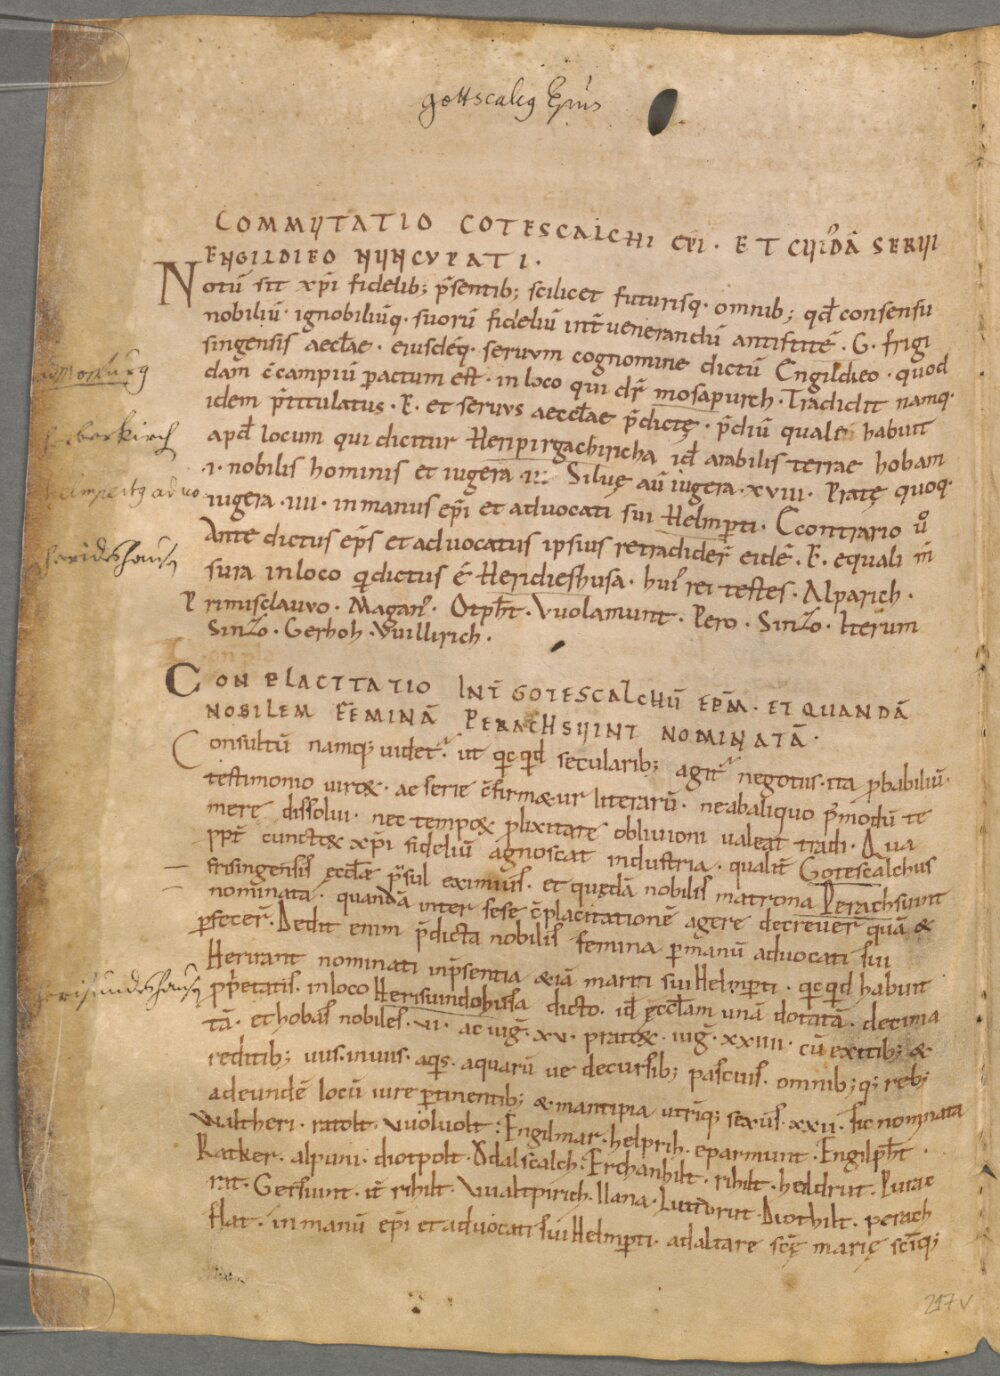 gottscalcg Ep̄us
COMMVTATIO COTESCALCHI EPI · ET CVIꝰDĀ SERVI
ENGILDIEO NVNCVPATI ·
Notū sit xp̄i fidelib; p̄sentib; scilicet futurisq· omnib; qđ consensu
nobiliū · ignobiliūq· suorū fideliū int̄ uenerandū antistitē · G · frigi
singensis aecłae · eiusdēq· seruum cognomine dictū Engildieo · quod
dam c̄campiū pactum est · in loco qui dr̄ mosapurch · Tradidit namq·
idem p̄titulatus · E · et seruus aecclae p̄dictę · p̄diū quale habuit
apđ locum qui dicitur Heripirgachiricha iđ arabilis terrae hobam
·i· nobilis hominis et iugera ·ii· Siluę aū iugera · xviii · Pratę quoq·
iugera · iiii · in manus ep̄i et aduocati sui Helmpti · Econtrario u̇
Ante dictus ep̄s et aduocatus ipsius retradider̄ eidē · E · equali m̄
sura in loco qi dictus ē Heridieshusa · huiꝰ rei testes · Alparich ·
Primisclauuo · Maganꝰ · Otph̄t · Vuolamunt · Pero · Sinzo · Iterum
Sinzo · Gerhoh · Vuillirich ·
CONPLACITATIO INT̄ GOTESCALCHŪ EPM̄ · ET QUANDĀ
NOBILEM FEMINĀ PERACHSVINT NOMINATĀ ·
Consultū namq; uidet᷑ · ut qcqđ secularib; agit᷑ negotiis · ita p̄babiliū ·
testimonio uiroꝝ · ac serie c̄firmetur literarū · ne ab aliquo p̄modū te
mere dissolui · nec tempoꝝ p̄lixitate obliuioni ualeat tradi · Qua
ppt̄ cunctoꝝ xp̄i fideliū agnoscat industria · qualit̄ Gotescalchus
frisingensis ecclae p̄sul eximius · et quędā nobilis matrona Perachsuint
nominata · quandā inter sese c̄placitationē agere decreuer̄ quā &
pfecer̄ · Dedit enim p̄dicta nobilis femina p manū aduocati sui
Heriuant nominati inp̄sentia &iā mariti sui Helmpti · qcqđ habuit
pp̄etatis · in loco Herisuindohusa dicto · iđ ecclam unā dotatā · decima
tā · et hobas nobiles · vi · ac iug̅ · xv · pratoꝝ · iug̅ · xxiiii · cū exitib; &
reditib; uiis · inuiis · aqis · aquarū ue decursib; pascuis · omnib; q; reb;
ad eundē locū iure ptinentib; & mancipia utriq; sexus · xxii · sic nominata
Waltheri · ratolt · wolvolt · Engilmar · helprih · eparmunt · Engilph̄t ·
Ratker · alpuni · diotpolt · Adalscalch · Erchanhilt · rihilt · heildrut · Purac
rat · Gersuint · it̄ rihilt · Vualtpirich · Ilana · Luitdrut · Diothilt · perach
flat · in manū ep̄i et aduocati sui Helmpti · ad altare scę̄ marię scīq;
heridshausn
217v